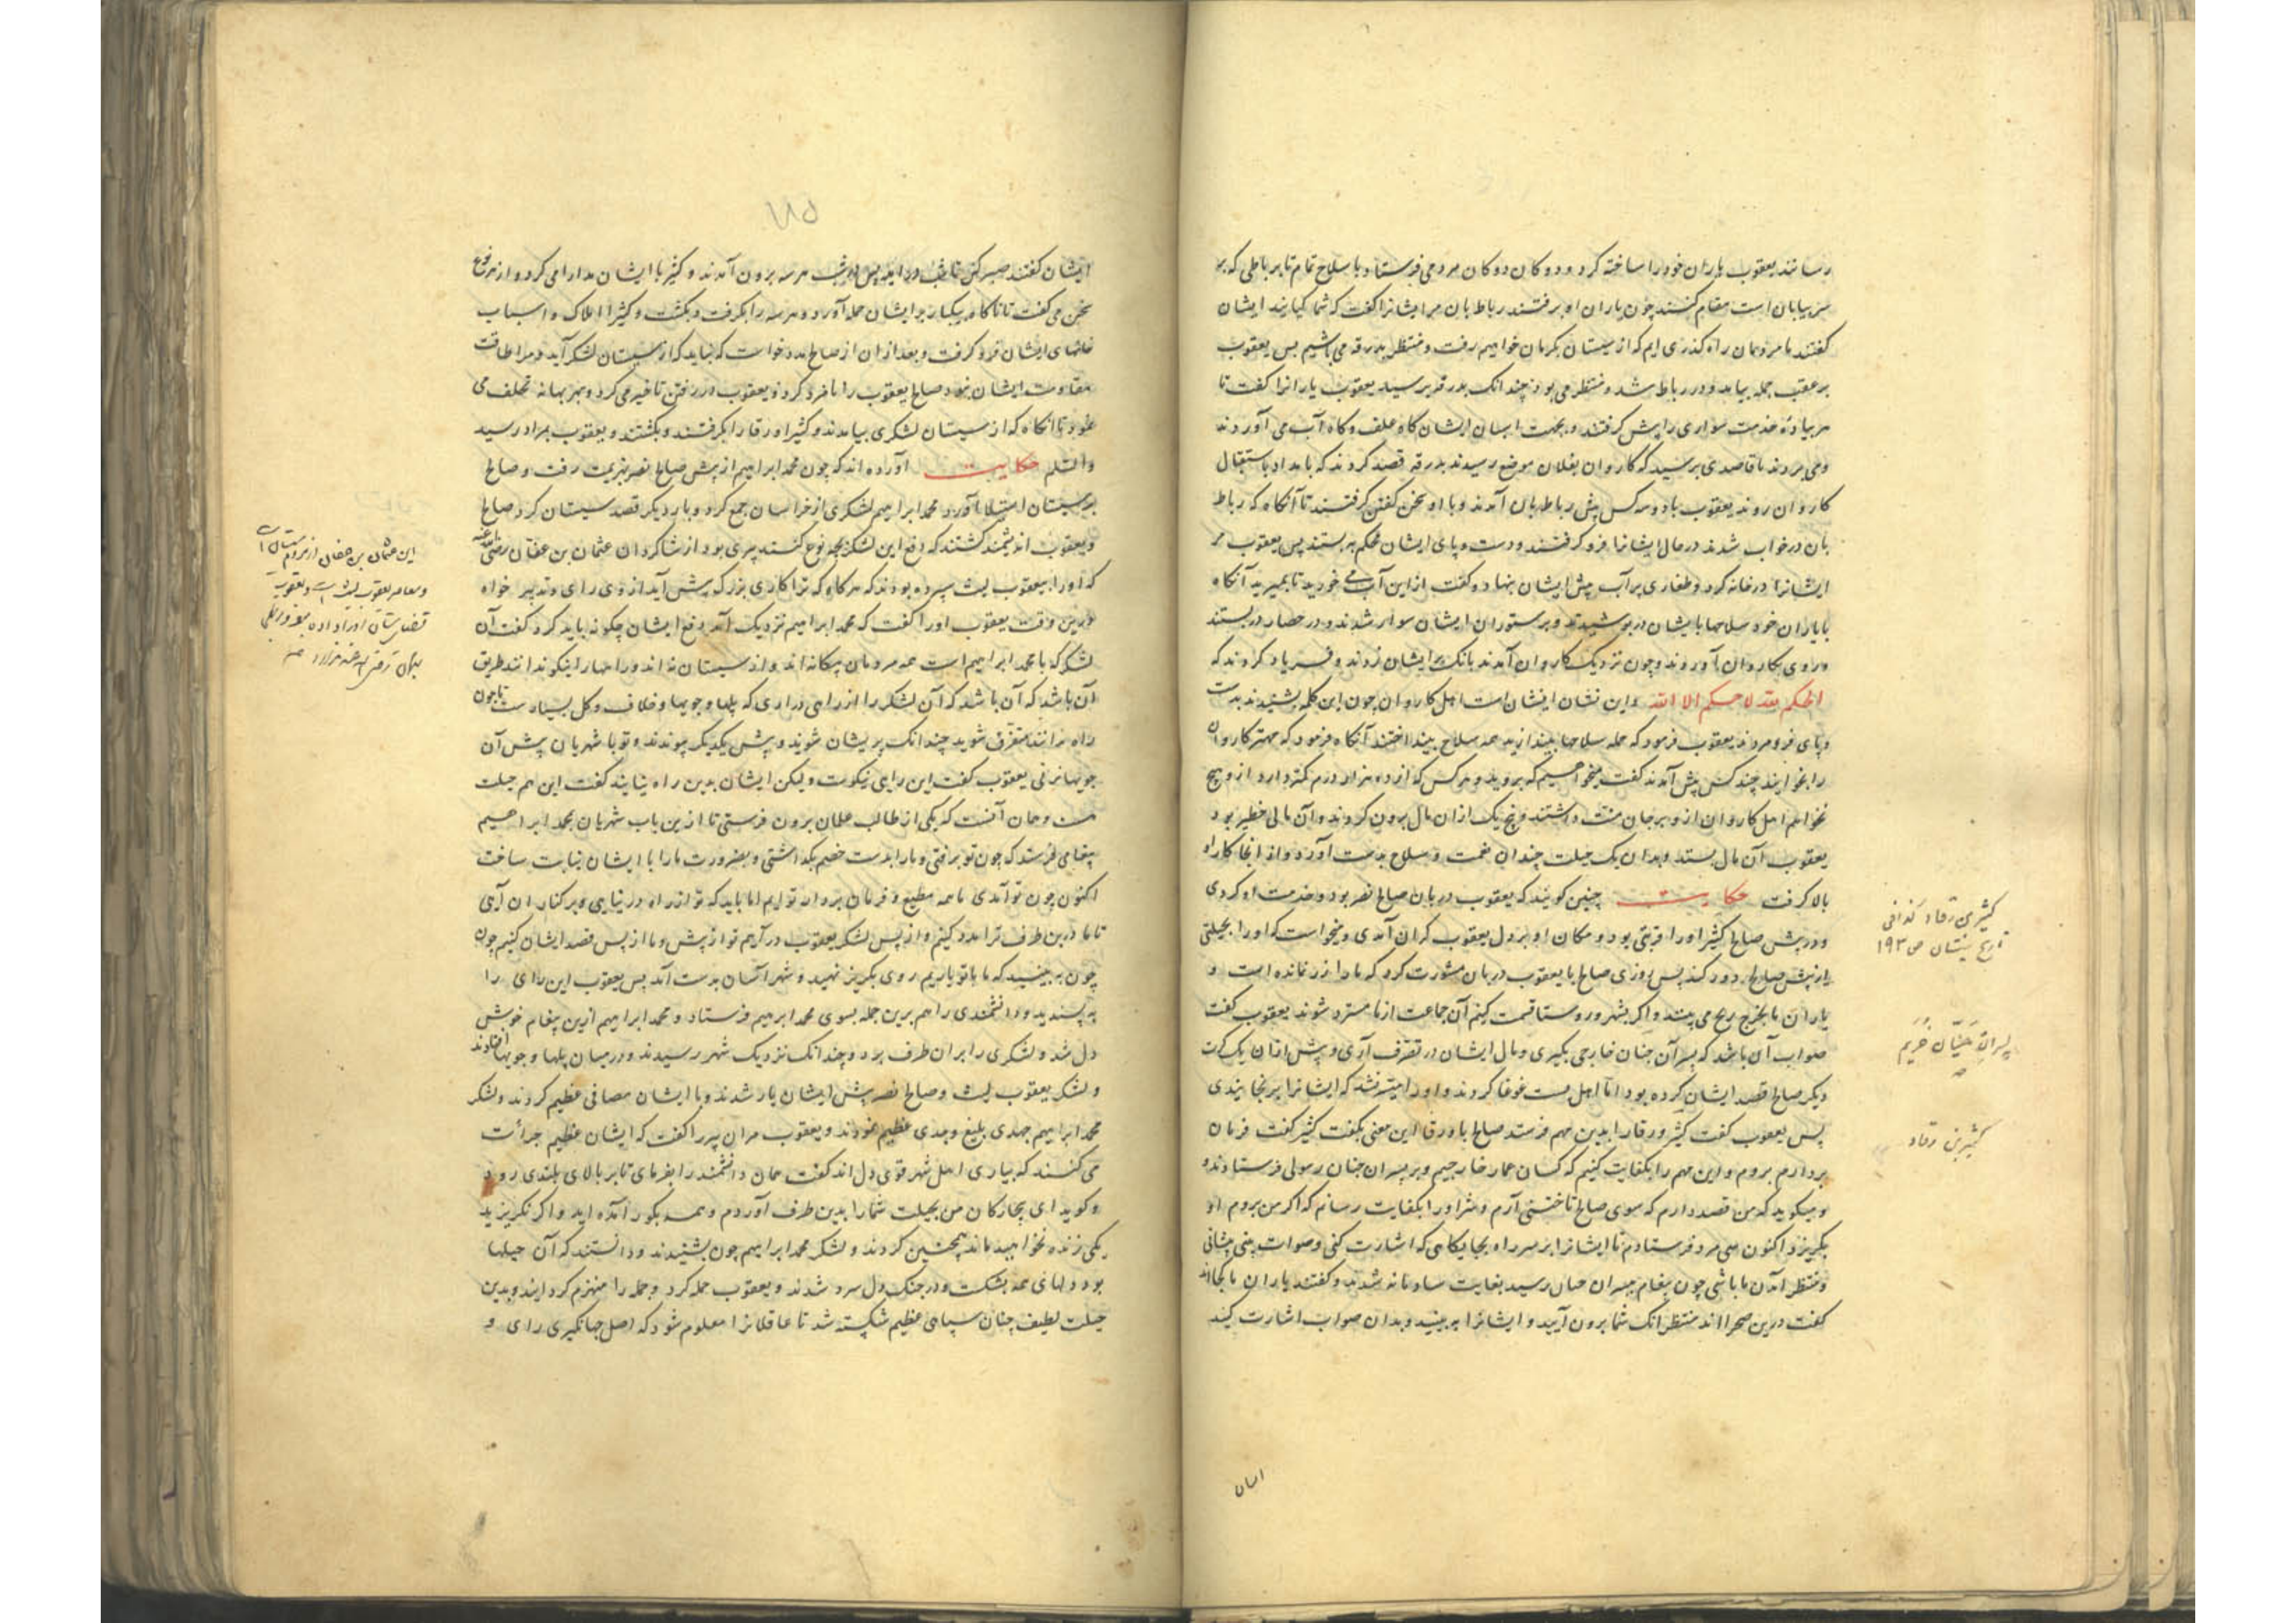 رسانند یعقوب یاران خود را ساخته کرد و دوکان دوکان مردمی فرستاد با سلاح تمام تا بر باطی که بر
سر بیابان است مقام کنند چون یاران او برفتند رباط بان مر ایشانرا گفت که شما کیانید ایشان
گفتند ما مردمان راه گذری ایم که از سیستان بکرمان خواهیم رفت و منتظر بدرقه می باشیم پس یعقوب
بر عقب جمله بیامد و در رباط شد و منتظر می بود چندانک بدرقه برسید یعقوب یارانرا گفت تا
هر پیاده خدمت سواری را پیش گرفتند و بجهت اسبان ایشان کاه علف و کاه آب می آوردند
و می بردند تا قاصدی برسید که کاروان بفلان موضع رسیدند بدرقه قصد کردند که بامداد باستقبال
کاروان روند یعقوب با دو سه کس پیش رباط بان آمدند و با او سخن گفتن گرفتند تا آنگاه که رباط
بان در خواب شدند در حال ایشانرا فرو گرفتند و دست و پای ایشان محکم به بستند پس یعقوب مر
ایشانرا در خانه کرد و طغاری پر آب پیش ایشان بنهاد و گفت از این آب می خورید تا بمیرید آنگاه
با یاران خود سلاحها ایشان در پوشیدند و بر ستوران ایشان سوار شدند و در حصار در بستند
و روی بکاروان آوردند و چون نزدیک کاروان آمدند بانگ بر ایشان زدند و فریاد کردند که
الحکم لله لا حکم الا الله و این نشان ایشان است اهل کاروان چون این کلمه بشنیدند بدست
و پای فرو مردند یعقوب فرمود که جمله سلاحها بیندازید همه سلاح بینداختند آنگاه فرمود که مهتر کاروان
را بخوانید چند کس پیش آمدند گفت میخواهیم که بروید و هر کس که از ده هزار درم کمتر دارد از و هیچ
نخواهم اهل کاروان از و بر جان منت داشتند و پنج یک از ان مال برون کردند و آن مالی خطیر بود
یعقوب آن مال بستد و بدان یک حیلت چندان نعمت و سلاح بدست آورد و از انجا کار او
بالا گرفت حکایت چنین گویند که یعقوب دربان صالح نصر بود و خدمت او کردی
و در پیش صالح کثیر او را قربتی بود و مکان او بر دل یعقوب گران آمدی و میخواست که او را بحیلتی
از پیش صالح دور کند پس روزی صالح با یعقوب دربان مشورت کرد که ما را زر نمانده است و
یاران ما بخرج رنج می بینند و اگر بشهر و روستا قسمت کنم آن جماعت از ما مسترد شوند یعقوب گفت
صواب آن باشد که پسر آن حنان خارجی بگیری و مال ایشان در تصرف آری و پیش ازان یک کرت
دیگر صالح قصد ایشان کرده بود اما اهل بست غوغا کردند و او را میسر نشد که ایشانرا برنجانیدی
پس یعقوب گفت کثیر ورقا را بدین مهم فرستد صالح با ورقا این معنی بگفت کثیر گفت فرمان
بردارم بروم و این مهم را بکفایت کنیم که کسان عمار خارجیم و بر پسران حنان رسولی فرستادند و
و میگوید که من قصد دارم که سوی صالح تاختنی آرم و شر او را بکفایت رسانم که اگر من بروم او
بگریزد اکنون سی مرد فرستادم تا ایشانرا بر سر راه بجایگاهی که اشارت کنی و صواب بینی بنشانی
و منتظر آمدن ما باشی چون پیغام پسران حنان رسید بغایت شادمانه شدند و گفتند یاران ما کجا اند
گفت درین صحرا اند منتظر انک شما برون آیید و ایشانرا به بینید و بدان صواب اشارت کنید
ایشان
کثیر بن رقاد کذا فی
تاریخ سیستان ص ۱۹۳
پسران حیّان خُریم
کثیر بن رقاد
ایشان گفتند صبر کن تا شب در آید پس در شب هر سه برون آمدند و کثیر با ایشان مدارا می کرد و از هر نوع
سخن می گفت تا ناگاه بیکبار بر ایشان حمله آورد و هر سه را بگرفت و بکشت و کثیر املاک و اسباب
خانهای ایشان فرو گرفت و بعد ازان از صالح مدد خواست که نباید که از سیستان لشکر آید و مرا طاقت
مقاومت ایشان نبود صالح یعقوب را نامزد کرد و یعقوب در رفتن تاخیر می کرد و بهر بهانه تخلف می
نمود تا انگاه که از سیستان لشکری بیامدند و کثیر اورقا را بگرفتند و بکشتند و یعقوب بمراد رسید
والسلم حکایت آورده اند که چون محمد ابراهیم از پیش صالح نصر بهزیمت رفت و صالح
بر سیستان استیلا آورد محمد ابراهیم لشکری از خراسان جمع کرد و بار دیگر قصد سیستان کرد صالح
و یعقوب اندیشمند گشتند که دفع این لشکر بچه نوع کنند پیری بود از شاکردان عثمان بن عفان رضی الله عنه
که او را بیعقوب لیث سپرده بودند که هر گاه که ترا کاری بزرگ پیش آید از وی رای و تدبیر خواه
درین وقت یعقوب او را گفت که محمد ابراهیم نزدیک آمد دفع ایشان چگونه باید کرد گفت آن
لشکر که با محمد ابراهیم است همه مردمان بیگانه اند و از سیستان نه اند و راهها را نیکو ندانند طریق
آن باشد که آن باشد که آن لشکر را از راهی در آری که پلها و جویها و خلاف و گل بسیارست تا چون
راه ندانند متفرق شوند چندانک پریشان شوند و پیش یکدیگر پیوندند و تو با شهریان پیش آن
جویها بزنی یعقوب گفت این رای نیکوست ولیکن ایشان بدین راه نیایند گفت این هم حیلت
هست و همان آنست که یکی از طالب علمان برون فرستی تا از این باب شهریان بمحمد ابراهیم
پیغامی فرستد که چون تو برفتی و ما را بدست خصم بگذاشتی و بضرورت ما را با ایشان نیابت ساخت
اکنون چون تو آمدی ما همه مطیع و فرمان بردار توایم اما باید که تو از راه در نیایی و بر کناران آیی
تا ما درین طرف ترا مدد کنیم و از پس لشکر یعقوب در آییم تو از پیش و ما از پس قصد ایشان کنیم چون
چون به بینید که ما با تو یاریم روی بگریز نهید و شهر آسان بدست آمد پس یعقوب این رای را
به پسندید و دانشمندی را هم برین جمله بسوی محمد ابرهیم فرستاد و محمد ابراهیم ازین پیغام خوش
دل شد و لشکری را بران طرف برد و چندانک نزدیک شهر رسیدند و در میان پلها و جویها افتادند
و لشکر یعقوب لیث و صالح نصر پیش ایشان باز شدند و با ایشان مصافی عظیم کردند و لشکر
محمد ابراهیم جهدی بلیغ و جدی عظیم نمودند و یعقوب مران پیر را گفت که ایشان عظیم جرأت
می کنند که بیاری اهل شهر قوی دل اند گفت همان دانشمند را بفرمای تا بر بالای بلندی رود
و گوید ای بیچارگان من بحیلت شما را بدین طرف آوردم و همه بگور آمده اید و اگر نگریزید
یکی زنده نخواهید ماند همچنین کردند و لشکر محمد ابراهیم چون بشنیدند و دانستند که آن حیلها
بود دلهای همه بشکست و در جنک دل سرد شدند و یعقوب حمله کرد و جمله را منهزم گردانید و بدین
حیلت لطیف چنان سپاهی عظیم شکسته شد تا عاقلانرا معلوم شود که اصل جهانگیری رای و
این عثمان بن عفان از مردم سیستان است
و معاصر یعقوب لیث است و یعقوب